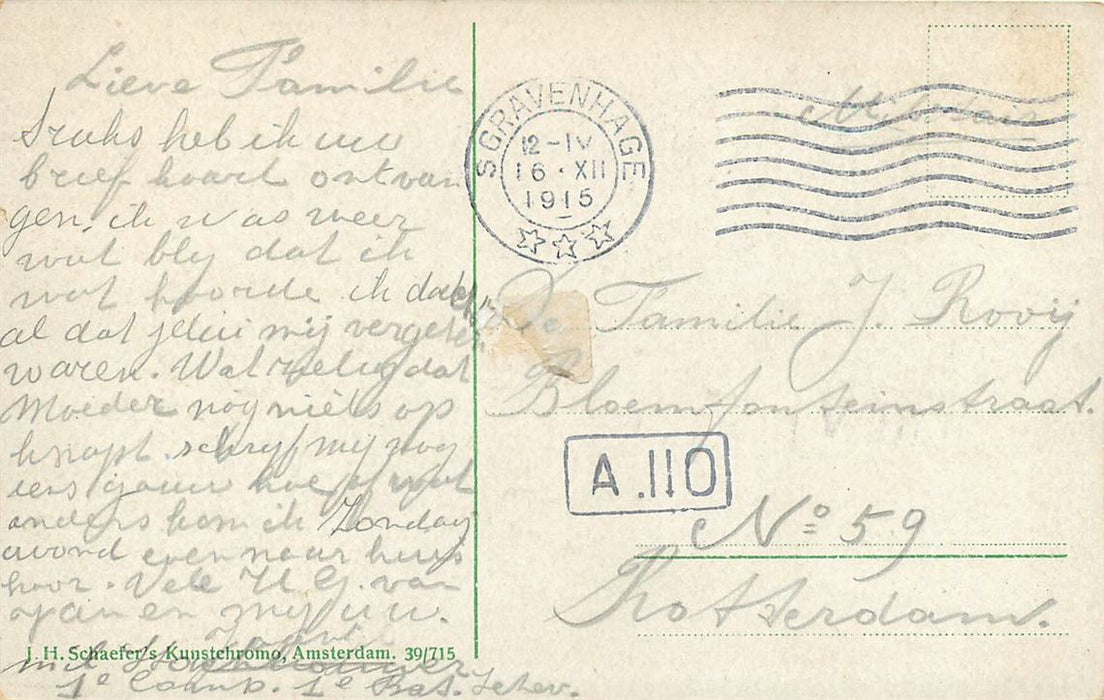 Lieve Familie
heb ik uw
brief kaart ontvan
gen, ik was weer
wat bly dat ik
wat hoorde ik dacht
al dat jelui mij vergeten
waren. Wat dat
Moeder nog niets op
knapt. schryf my nog
eens gauw hoe of wat
anders kom ik Zondag
avond even naar huys
hoor. Vele U G. van
Jan en
mil
1e Comp. 1e Bat.
J. H. Schaefer's Kunstchromo, Amsterdam. 39/715
S GRAVENHAGE
12-IV
16·XII
1915
Militair
De Familie J. Rooij
Bloemfonteinstraat.
A.110
No 59
Rotterdam.